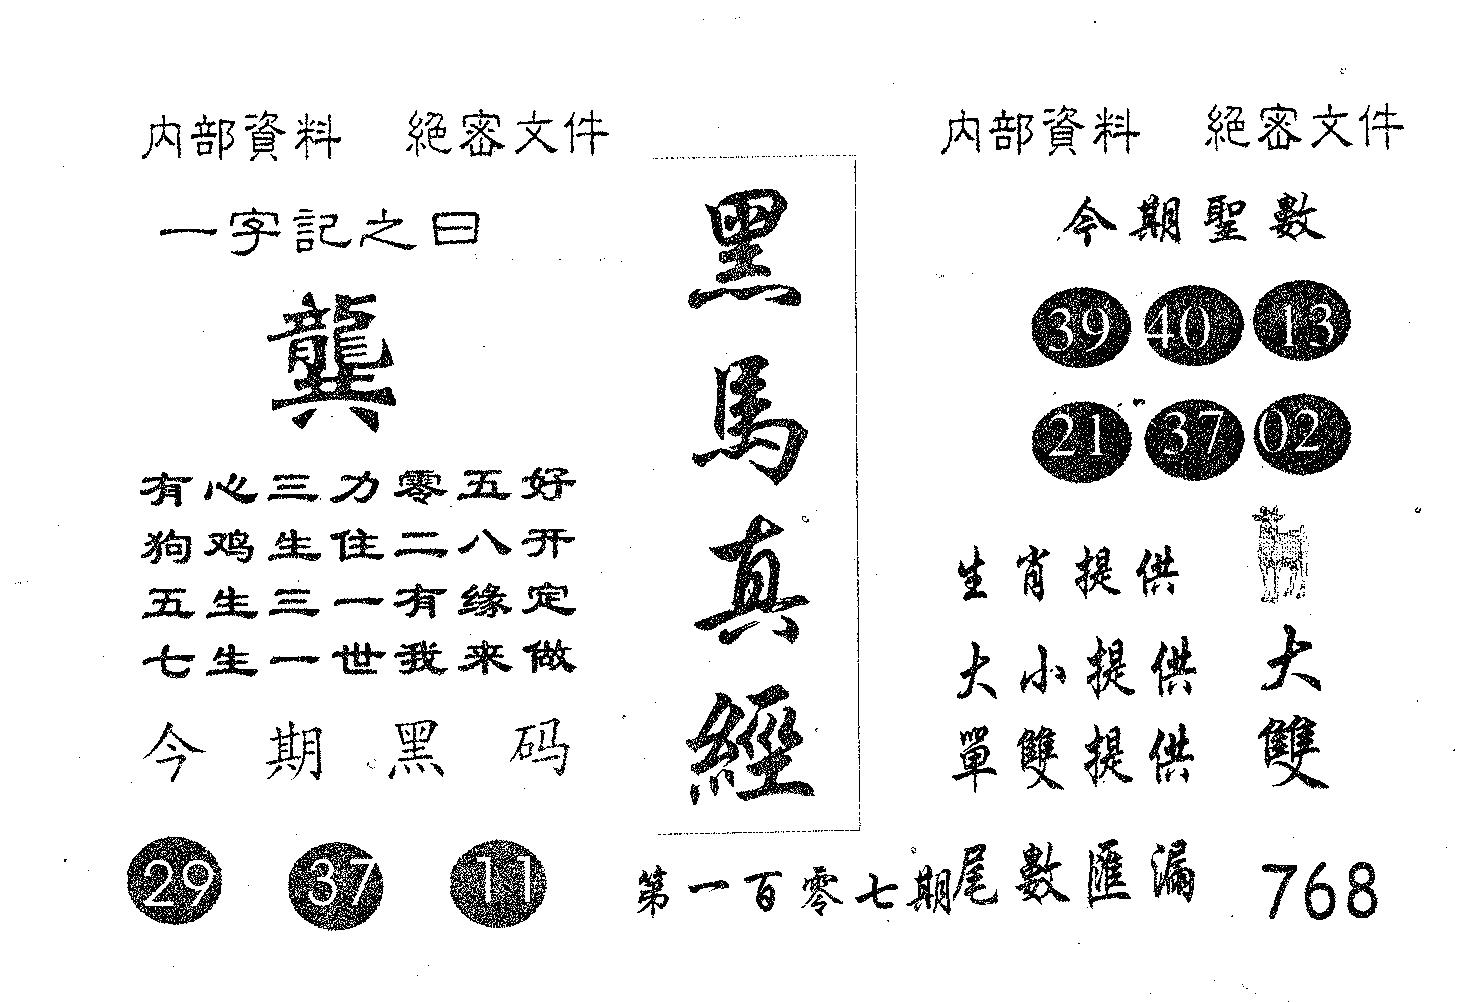 内部資料 絕密文件
一字記之曰
龔
有心三力零五好
狗鸡生住二八开
五生三一有缘定
七生一世我来做
今期黑码
29 37 11
黑馬真經
第一百零七期
内部資料 絕密文件
今期聖數
39 40 13
21 37 02
生肖提供
大小提供 大
單雙提供 雙
尾數匯漏 768